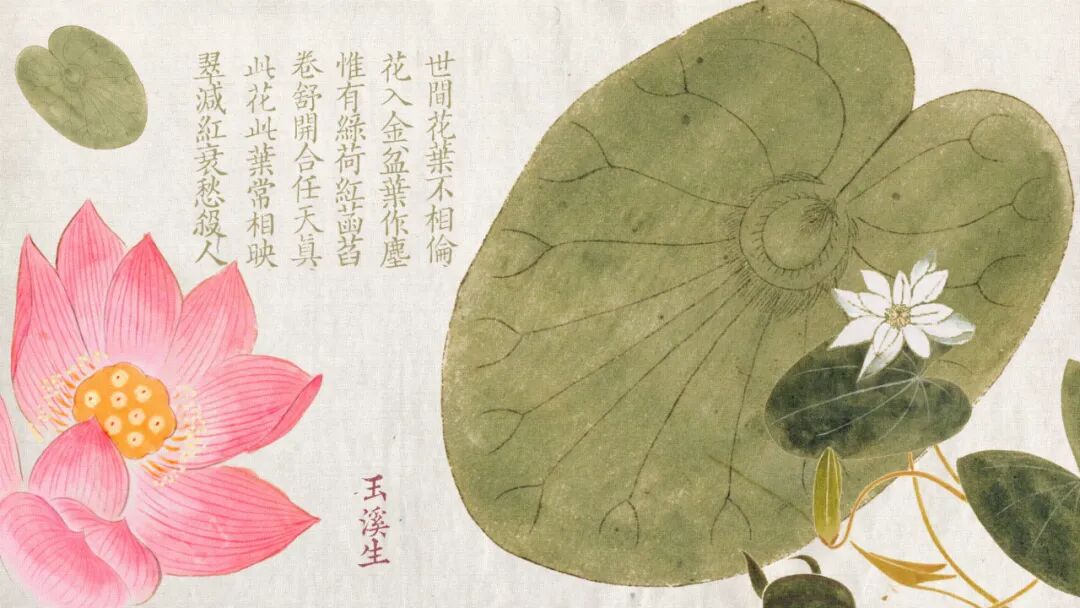 世間花葉不相倫
花入金盆葉作塵
惟有綠荷紅菡萏
卷舒開合任天真
此花此葉常相映
翠減紅衰愁殺人
玉溪生